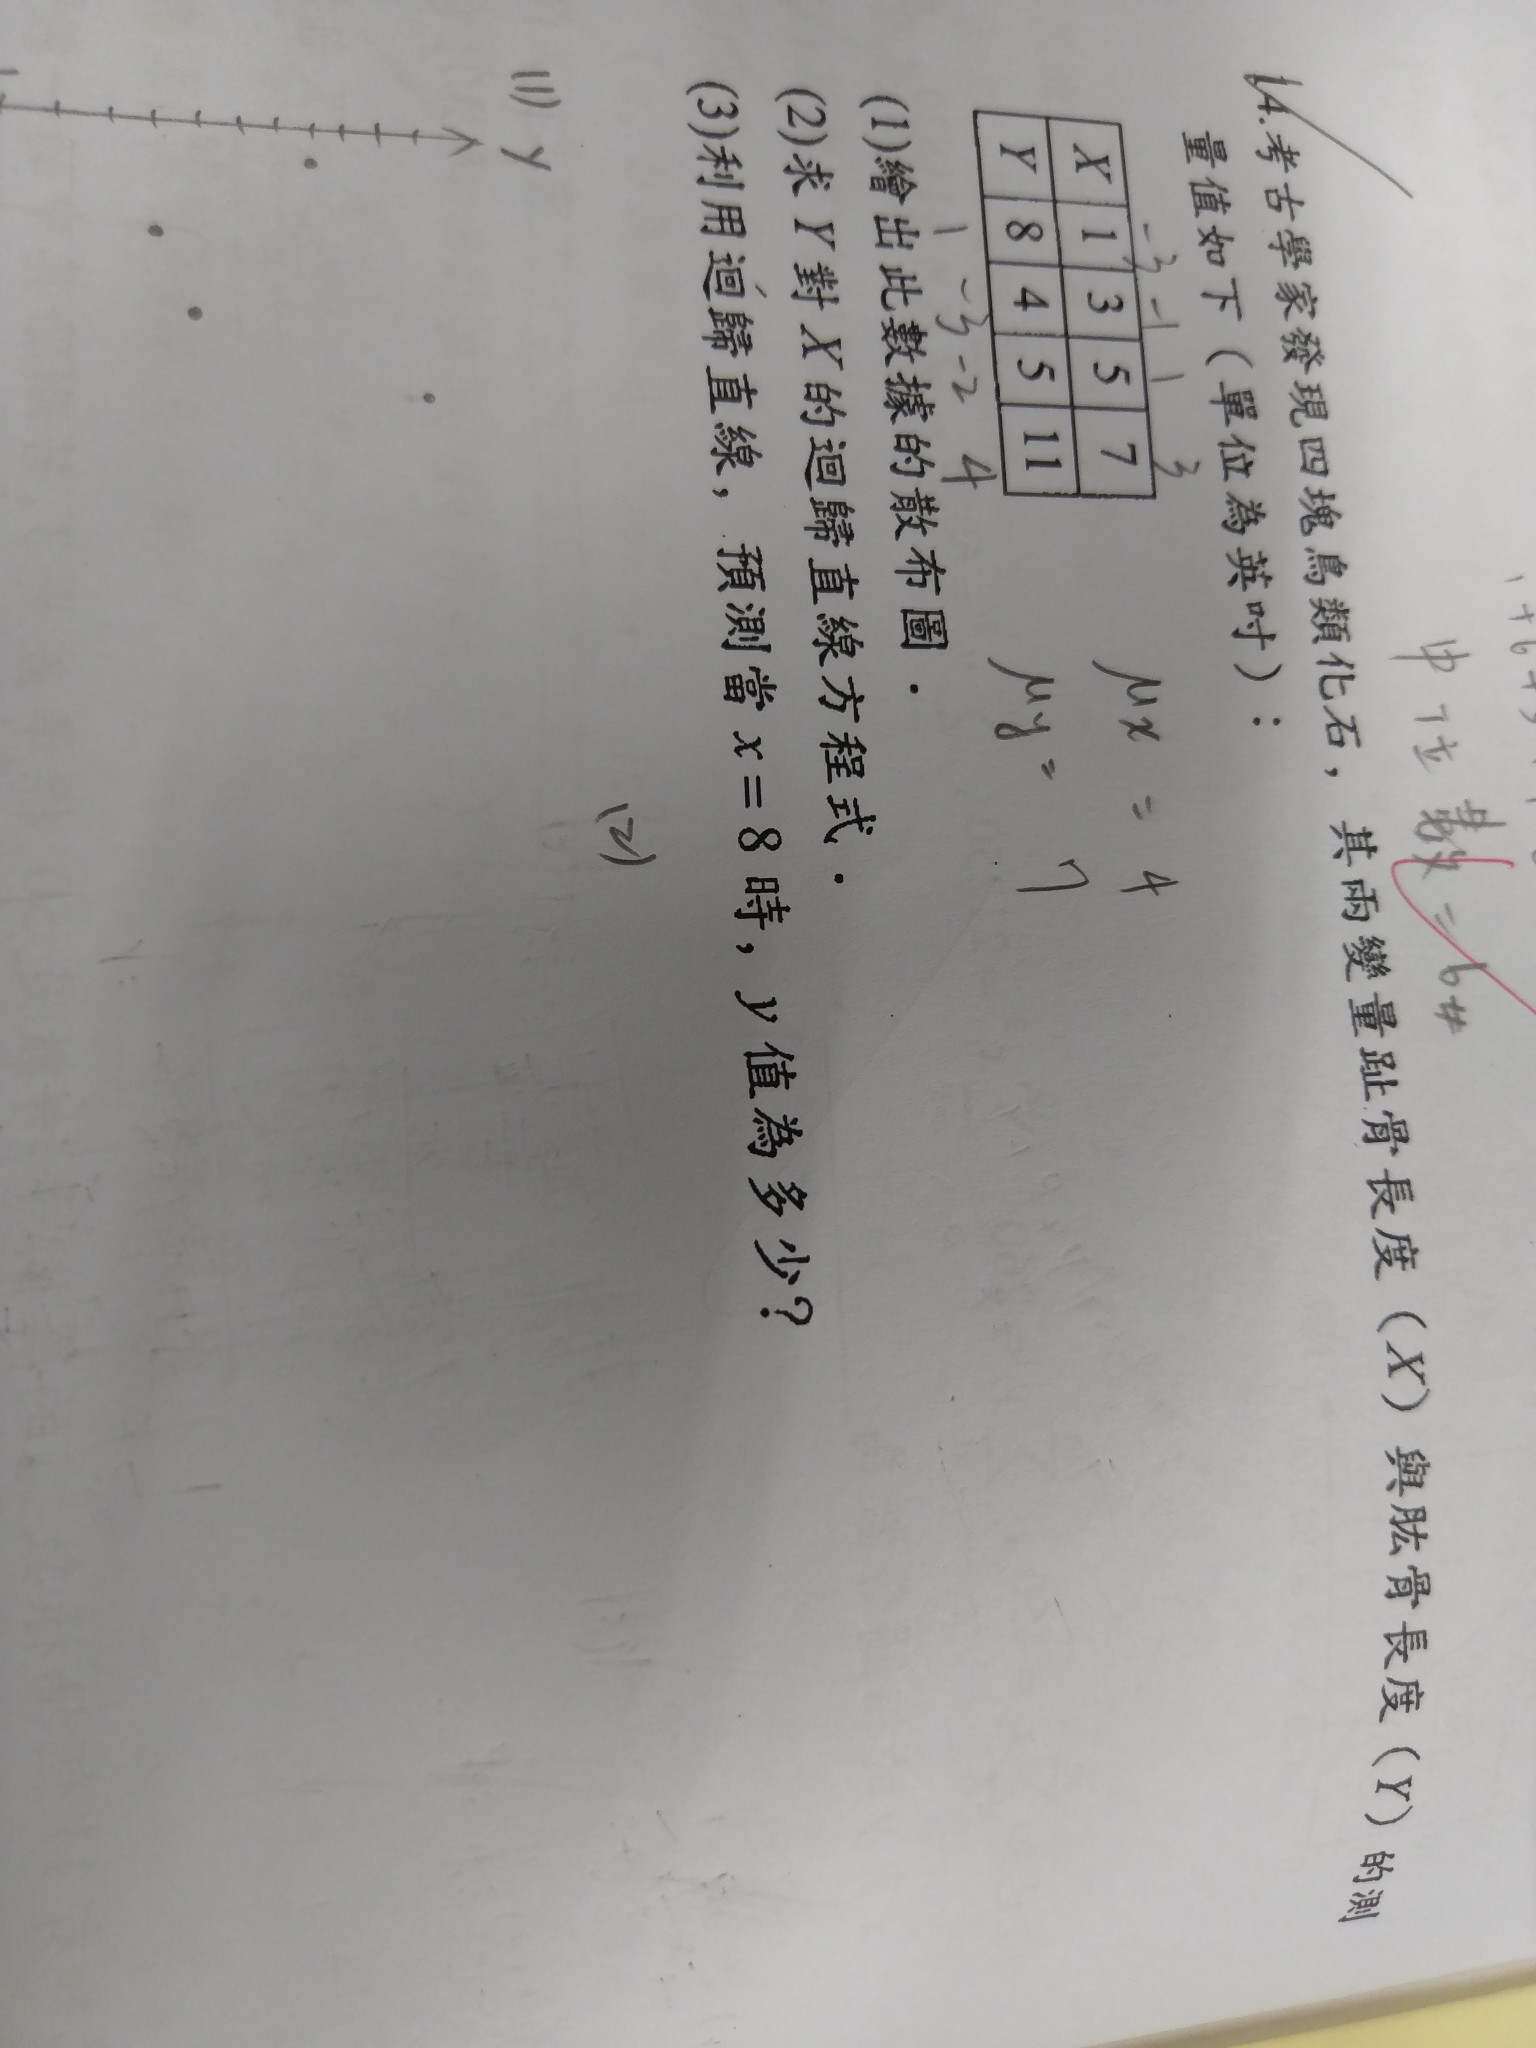 中位數=6#
14.考古學家發現四塊鳥類化石，其兩變量趾骨長度（X）與肱骨長度（Y）的測
量值如下（單位為英吋）：
-3 -1 1 3
X 1 3 5 7
Y 8 4 5 11
1 -3 -2 4
μx = 4
μy = 7
(1)繪出此數據的散布圖．
(2)求 Y 對 X 的迴歸直線方程式．
(3)利用迴歸直線，預測當 x＝8 時，y 值為多少？
(1) y
(2)